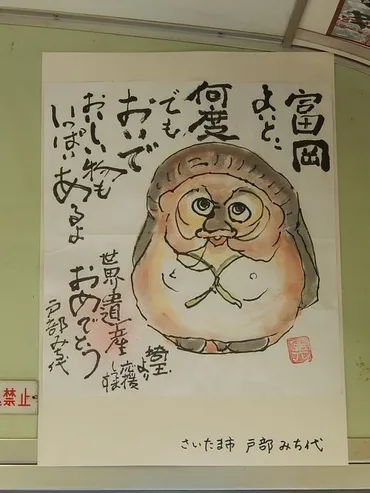 富岡
よいと、
何度
でも
おいで
おいしい物も
いっぱいあるよ
世界遺産
おめでとう
埼玉
より
応援
してます
戸部みち代
さいたま市 戸部みち代
禁止